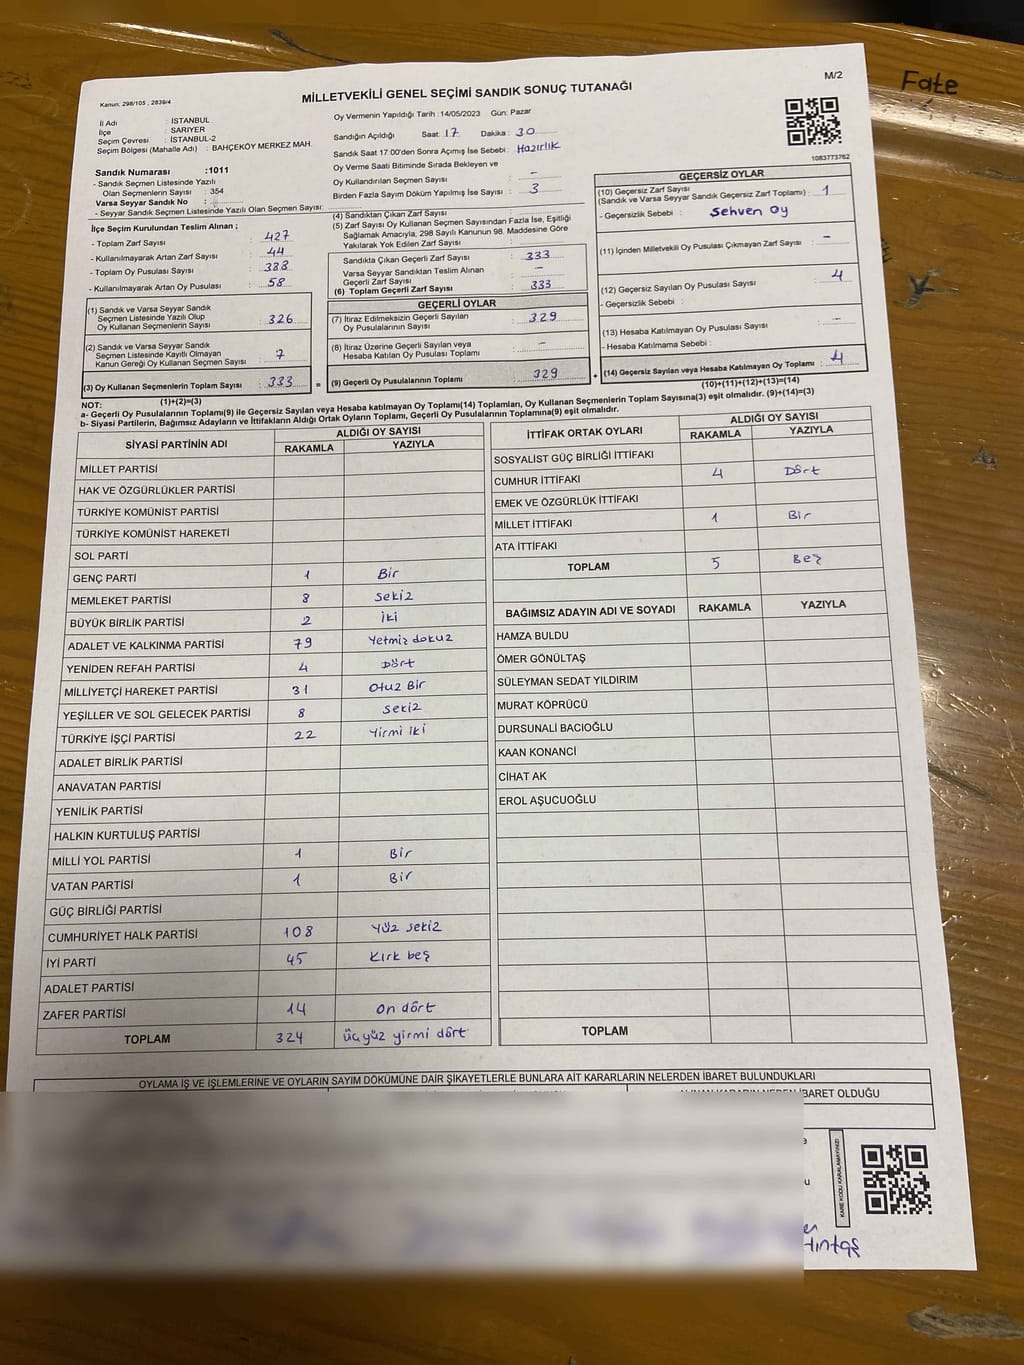 Fate
M/2
Kanun: 298/105 , 2839/4
MİLLETVEKİLİ GENEL SEÇİMİ SANDIK SONUÇ TUTANAĞI
İl Adı : İSTANBUL
İlçe : SARIYER
Seçim Çevresi : İSTANBUL-2
Seçim Bölgesi (Mahalle Adı) : BAHÇEKÖY MERKEZ MAH.
Sandık Numarası :1011
- Sandık Seçmen Listesinde Yazılı
Olan Seçmenlerin Sayısı : 354
Varsa Seyyar Sandık No :
- Seyyar Sandık Seçmen Listesinde Yazılı Olan Seçmen Sayısı:
İlçe Seçim Kurulundan Teslim Alınan ;
- Toplam Zarf Sayısı : 427
- Kullanılmayarak Artan Zarf Sayısı : 44
- Toplam Oy Pusulası Sayısı : 388
- Kullanılmayarak Artan Oy Pusulası : 58
(1) Sandık ve Varsa Seyyar Sandık
Seçmen Listesinde Yazılı Olup
Oy Kullanan Seçmenlerin Sayısı : 326
(2) Sandık ve Varsa Seyyar Sandık
Seçmen Listesinde Kayıtlı Olmayan
Kanun Gereği Oy Kullanan Seçmen Sayısı : 7
(3) Oy Kullanan Seçmenlerin Toplam Sayısı : 333
(1)+(2)=(3)
Oy Vermenin Yapıldığı Tarih :14/05/2023 Gün: Pazar
Sandığın Açıldığı Saat: 17 Dakika : 30
Sandık Saat 17.00'den Sonra Açımış İse Sebebi : Hazırlık
Oy Verme Saati Bitiminde Sırada Bekleyen ve
Oy Kullandırılan Seçmen Sayısı : -
Birden Fazla Sayım Döküm Yapılmış İse Sayısı : 3
(4) Sandıktan Çıkan Zarf Sayısı
(5) Zarf Sayısı Oy Kullanan Seçmen Sayısından Fazla İse, Eşitliği
Sağlamak Amacıyla, 298 Sayılı Kanunun 98. Maddesine Göre
Yakılarak Yok Edilen Zarf Sayısı :
Sandıkta Çıkan Geçerli Zarf Sayısı : 333
Varsa Seyyar Sandıktan Teslim Alınan
Geçerli Zarf Sayısı : -
(6) Toplam Geçerli Zarf Sayısı : 333
GEÇERLİ OYLAR
(7) İtiraz Edilmeksizin Geçerli Sayılan
Oy Pusulalarının Sayısı : 329
(8) İtiraz Üzerine Geçerli Sayılan veya
Hesaba Katılan Oy Pusulası Toplamı : -
= (9) Geçerli Oy Pusulalarının Toplamı : 329 +
1083773762
GEÇERSİZ OYLAR
(10) Geçersiz Zarf Sayısı
(Sandık ve Varsa Seyyar Sandık Geçersiz Zarf Toplamı) : 1
- Geçersizlik Sebebi : Sehven Oy
(11) İçinden Milletvekili Oy Pusulası Çıkmayan Zarf Sayısı : -
(12) Geçersiz Sayılan Oy Pusulası Sayısı : 4
- Geçersizlik Sebebi :
(13) Hesaba Katılmayan Oy Pusulası Sayısı : -
- Hesaba Katılmama Sebebi :
(14) Geçersiz Sayılan veya Hesaba Katılmayan Oy Toplamı : 4
(10)+(11)+(12)+(13)=(14)
NOT:
a- Geçerli Oy Pusulalarının Toplamı(9) ile Geçersiz Sayılan veya Hesaba katılmayan Oy Toplamı(14) Toplamları, Oy Kullanan Seçmenlerin Toplam Sayısına(3) eşit olmalıdır. (9)+(14)=(3)
b- Siyasi Partilerin, Bağımsız Adayların ve İttifakların Aldığı Ortak Oyların Toplamı, Geçerli Oy Pusulalarının Toplamına(9) eşit olmalıdır.
SİYASİ PARTİNİN ADI ALDIĞI OY SAYISI
RAKAMLA YAZIYLA
MİLLET PARTİSİ
HAK VE ÖZGÜRLÜKLER PARTİSİ
TÜRKİYE KOMÜNİST PARTİSİ
TÜRKİYE KOMÜNİST HAREKETİ
SOL PARTİ
GENÇ PARTİ 1 Bir
MEMLEKET PARTİSİ 8 sekiz
BÜYÜK BİRLİK PARTİSİ 2 iki
ADALET VE KALKINMA PARTİSİ 79 Yetmiz dokuz
YENİDEN REFAH PARTİSİ 4 Dört
MİLLİYETÇİ HAREKET PARTİSİ 31 Otuz Bir
YEŞİLLER VE SOL GELECEK PARTİSİ 8 sekiz
TÜRKİYE İŞÇİ PARTİSİ 22 Yirmi iki
ADALET BİRLİK PARTİSİ
ANAVATAN PARTİSİ
YENİLİK PARTİSİ
HALKIN KURTULUŞ PARTİSİ
MİLLİ YOL PARTİSİ 1 Bir
VATAN PARTİSİ 1 Bir
GÜÇ BİRLİĞİ PARTİSİ
CUMHURİYET HALK PARTİSİ 108 Yüz sekiz
İYİ PARTİ 45 Kırk beş
ADALET PARTİSİ
ZAFER PARTİSİ 14 On dört
TOPLAM 324 üçyüz yirmi dört
İTTİFAK ORTAK OYLARI ALDIĞI OY SAYISI
RAKAMLA YAZIYLA
SOSYALİST GÜÇ BİRLİĞİ İTTİFAKI
CUMHUR İTTİFAKI 4 Dört
EMEK VE ÖZGÜRLÜK İTTİFAKI
MİLLET İTTİFAKI 1 Bir
ATA İTTİFAKI
TOPLAM 5 Beş
BAĞIMSIZ ADAYIN ADI VE SOYADI RAKAMLA YAZIYLA
HAMZA BULDU
ÖMER GÖNÜLTAŞ
SÜLEYMAN SEDAT YILDIRIM
MURAT KÖPRÜCÜ
DURSUNALİ BACIOĞLU
KAAN KONANCİ
CİHAT AK
EROL AŞUCUOĞLU
TOPLAM
OYLAMA İŞ VE İŞLEMLERİNE VE OYLARIN SAYIM DÖKÜMÜNE DAİR ŞİKAYETLERLE BUNLARA AİT KARARLARIN NELERDEN İBARET BULUNDUKLARI
İBARET OLDUĞU
KARE KODU KARALAMAYINIZ!